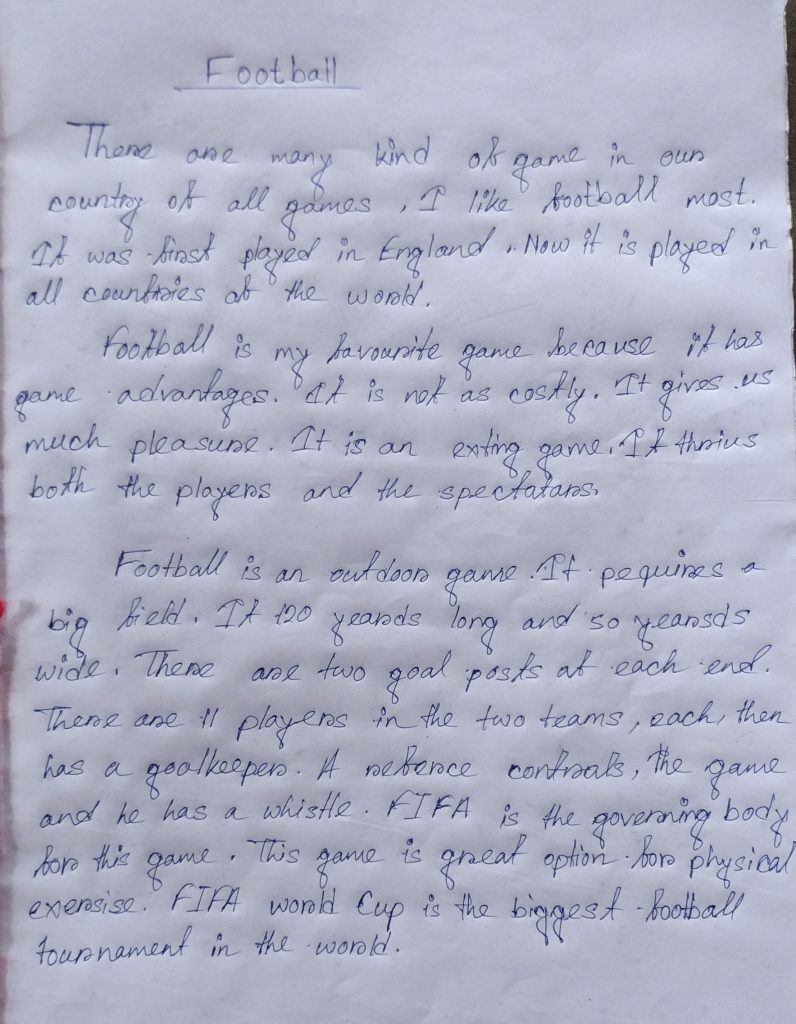 Football
There are many kind of game in our
country of all games, I like football most.
It was first played in England. Now it is played in
all countries of the world.
Football is my favourite game because it has
game advantages. It is not as costly. It gives us
much pleasure. It is an exting game. It thrius
both the players and the spectatars.
Football is an outdoor game. It pequires a
big field. It 120 yeards long and 50 yearsds
wide. There are two goal posts at each end.
There are 11 players in the two teams, each, then
has a goalkeeper. A reference contraals, the game
and he has a whistle. FIFA is the governing body
for this game. This game is great option for physical
exersise. FIFA world Cup is the biggest football
tournament in the world.